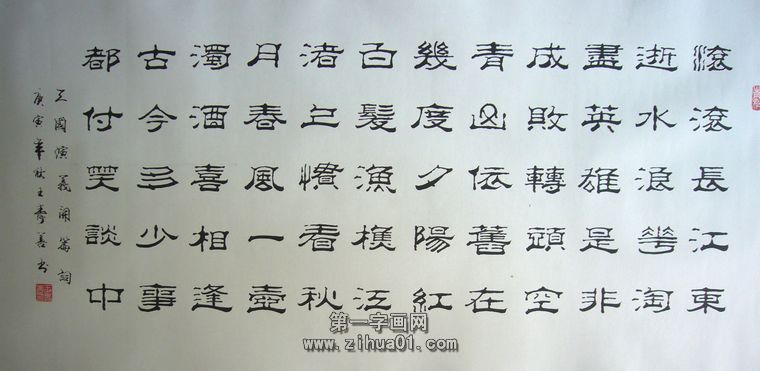 滾滾長江東
逝水浪花淘
盡英雄是非
成敗轉頭空
青山依舊在
幾度夕陽紅
白髮漁樵江
渚上慣看秋
月春風一壺
濁酒喜相逢
古今多少事
都付笑談中
三國演義開篇詞
庚寅年秋王壽善書
第一字画网
www.zihua01.com